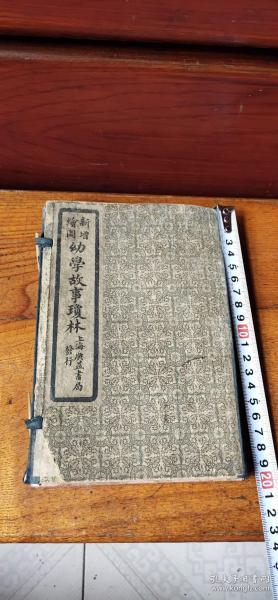 新增
繪圖
幼學故事瓊林
上海廣益書局
發行
3 4 5 6 7 8 9 10 1 2 3 4 5 6 7 8 9 20 1 2 3 4
孔夫子旧书网